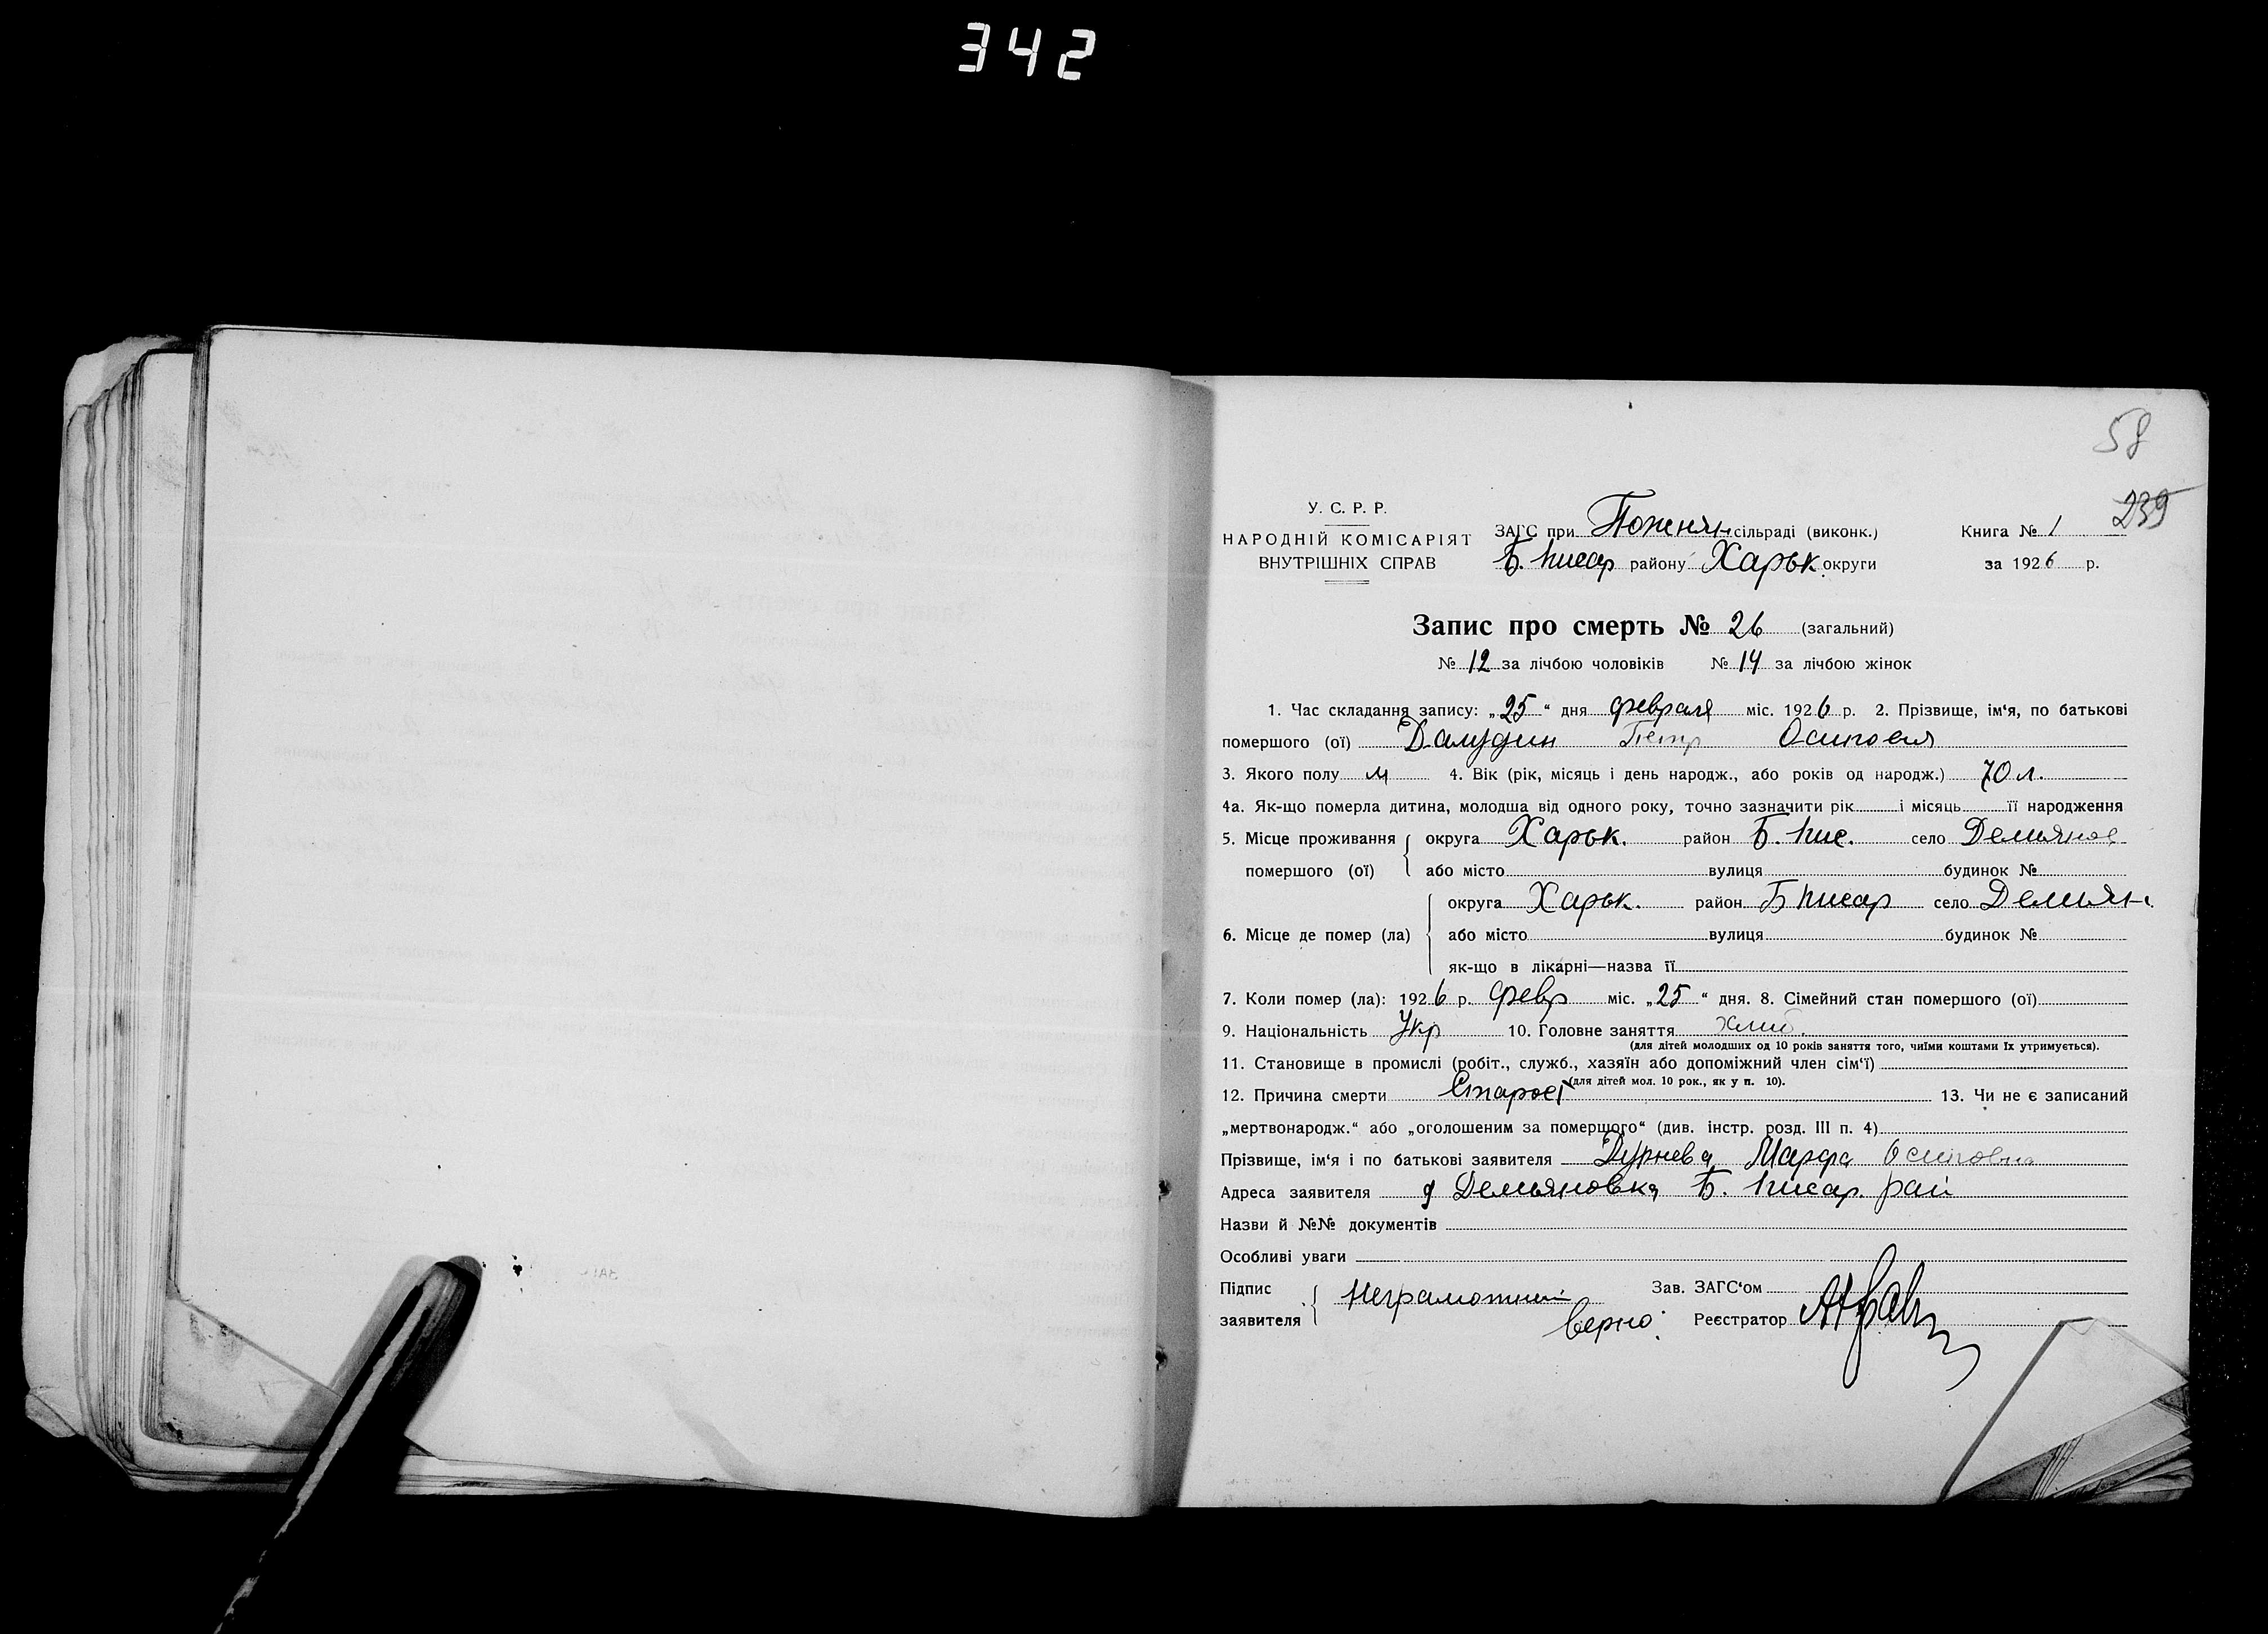 342
58
239
У. С. Р. Р.
НАРОДНІЙ КОМІСАРІЯТ
ВНУТРІШНІХ СПРАВ
ЗАГС при Пожнян сільраді (виконк.)
Б. Писар району Харьк. округи
Книга № 1
за 1926 р.
Запис про смерть № 26 (загальний)
№ 12 за лічбою чоловіків № 14 за лічбою жінок
1. Час складання запису: „25“ дня февраля міс. 1926 р. 2. Прізвище, ім‘я, по батькові
помершого (ої) Петр
3. Якого полу м 4. Вік (рік, місяць і день народж., або років од народж.) 70 л.
4а. Як-що померла дитина, молодша від одного року, точно зазначити рік і місяць її народження
5. Місце проживання помершого (ої) округа Харьк. район Б. Пис. село Демянов
або місто вулиця будинок №
6. Місце де помер (ла) округа Харьк. район Б Писар село Демьян
або місто вулиця будинок №
як-що в лікарні—назва її
7. Коли помер (ла): 1926 р. февр міс. „25“ дня. 8. Сімейний стан помершого (ої)
9. Національність Укр 10. Головне заняття
(для дітей молодших од 10 років заняття того, чиїми коштами їх утримується).
11. Становище в промислі (робіт., служб., хазяїн або допоміжний член сім‘ї)
(для дітей мол. 10 рок., як у п. 10).
12. Причина смерти Старост 13. Чи не є записаний
„мертвонародж.“ або „оголошеним за помершого“ (див. інстр. розд. III п. 4)
Прізвище, ім‘я і по батькові заявителя Дурнева Марфа Осиповна
Адреса заявителя д Демьяновка Б. Писар. рай
Назви й №№ документів
Особливі уваги
Підпис заявителя Неграмотный
Зав. ЗАГС‘ом
верно: Реєстратор